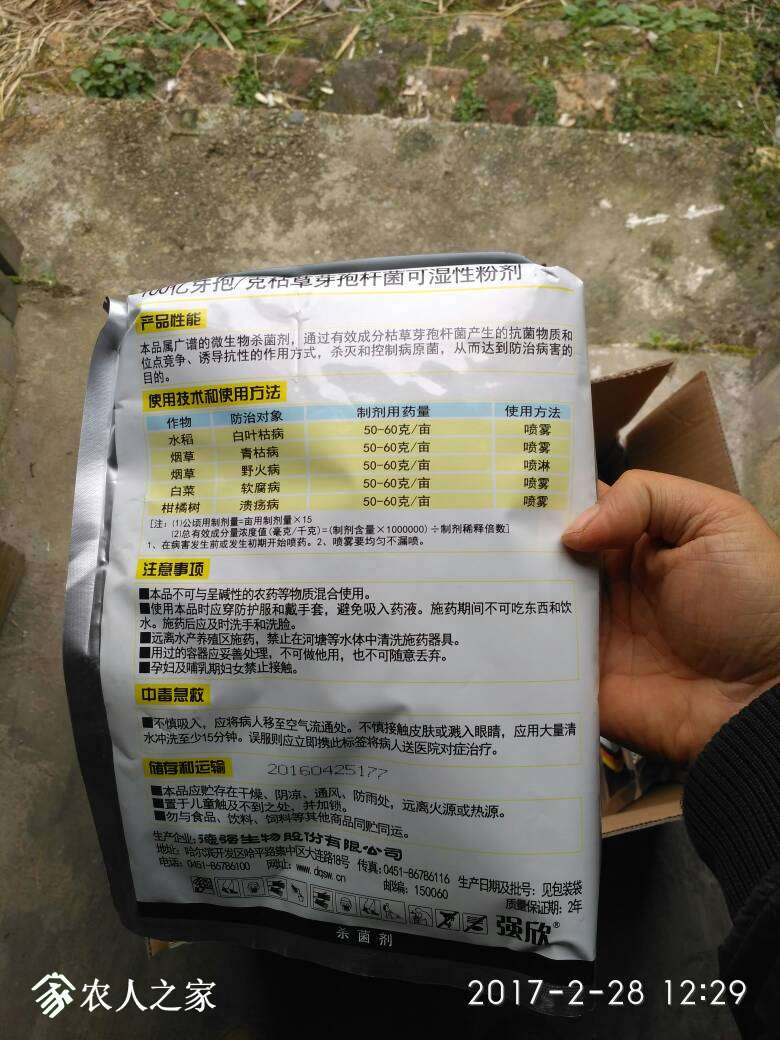 100亿芽孢/克枯草芽孢杆菌可湿性粉剂
产品性能
本品属广谱的微生物杀菌剂，通过有效成分枯草芽孢杆菌产生的抗菌物质和
位点竞争、诱导抗性的作用方式，杀灭和控制病原菌，从而达到防治病害的
目的。
使用技术和使用方法
作物 防治对象 制剂用药量 使用方法
水稻 白叶枯病 50-60克/亩 喷雾
烟草 青枯病 50-60克/亩 喷雾
烟草 野火病 50-60克/亩 喷淋
白菜 软腐病 50-60克/亩 喷雾
柑橘树 溃疡病 50-60克/亩 喷雾
[注：(1)公顷用制剂量=亩用制剂量×15
(2)总有效成分量浓度值(毫克/千克)=(制剂含量×1000000)÷制剂稀释倍数]
1、在病害发生前或发生初期开始喷药。2、喷雾要均匀不漏喷。
注意事项
■本品不可与呈碱性的农药等物质混合使用。
■使用本品时应穿防护服和戴手套，避免吸入药液。施药期间不可吃东西和饮
水。施药后应及时洗手和洗脸。
■远离水产养殖区施药，禁止在河塘等水体中清洗施药器具。
■用过的容器应妥善处理，不可做他用，也不可随意丢弃。
■孕妇及哺乳期妇女禁止接触。
中毒急救
■不慎吸入，应将病人移至空气流通处。不慎接触皮肤或溅入眼睛，应用大量清
水冲洗至少15分钟。误服则应立即携此标签将病人送医院对症治疗。
储存和运输 20160425177
■本品应贮存在干燥、阴凉、通风、防雨处，远离火源或热源。
■置于儿童触及不到之处，并加锁。
■勿与食品、饮料、饲料等其他商品同贮同运。
生产企业：德强生物股份有限公司
地址：哈尔滨开发区哈平路集中区大连路18号 传真：0451-86786116 生产日期及批号：见包装袋
电话：0451-86786100 网址：www.dqsw.cn 邮编：150060 质量保证期：2年
强欣®
杀菌剂
农人之家
2017-2-28 12:29